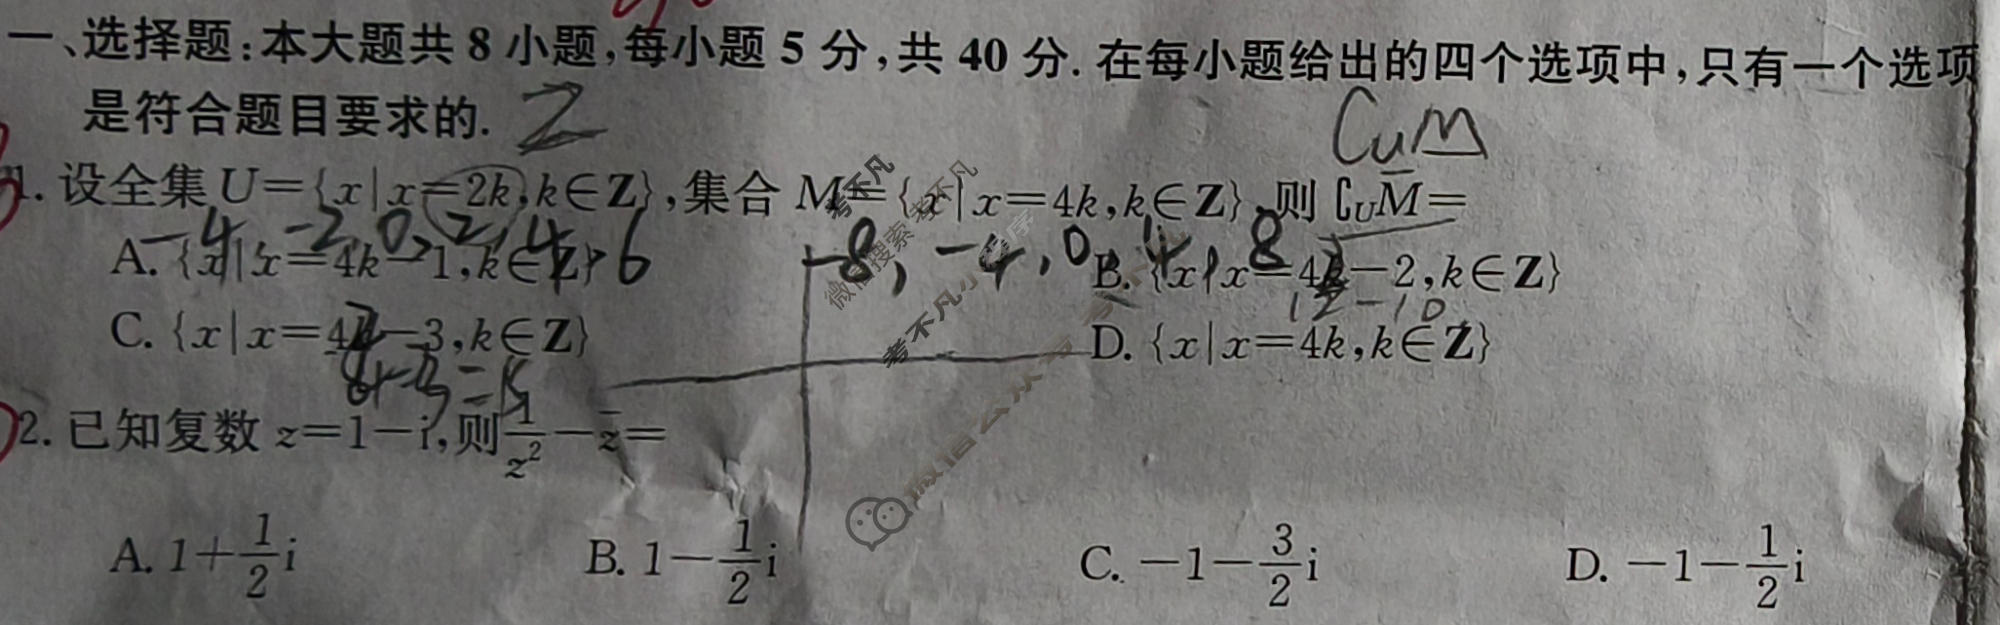 一、选择题:本大题共 8 小题,每小题 5 分,共 40 分. 在每小题给出的四个选项中,只有一个选项
是符合题目要求的. Z
CuM
1. 设全集 U={x|x=2k,k∈Z},集合 M={x|x=4k,k∈Z},则 ∁UM=
-4, -2, 0, 2, 4, 6
-8, -4, 0, 4, 8
A. {x|x=4k-1,k∈Z} B. {x|x=4k-2,k∈Z}
12-10
C. {x|x=4k-3,k∈Z} D. {x|x=4k,k∈Z}
2. 已知复数 z=1-i,则 1/z²-z̄=
A. 1+1/2i B. 1-1/2i C. -1-3/2i D. -1-1/2i
考不凡
微信搜索考不凡
考不凡小程序
微信公众号:考不凡